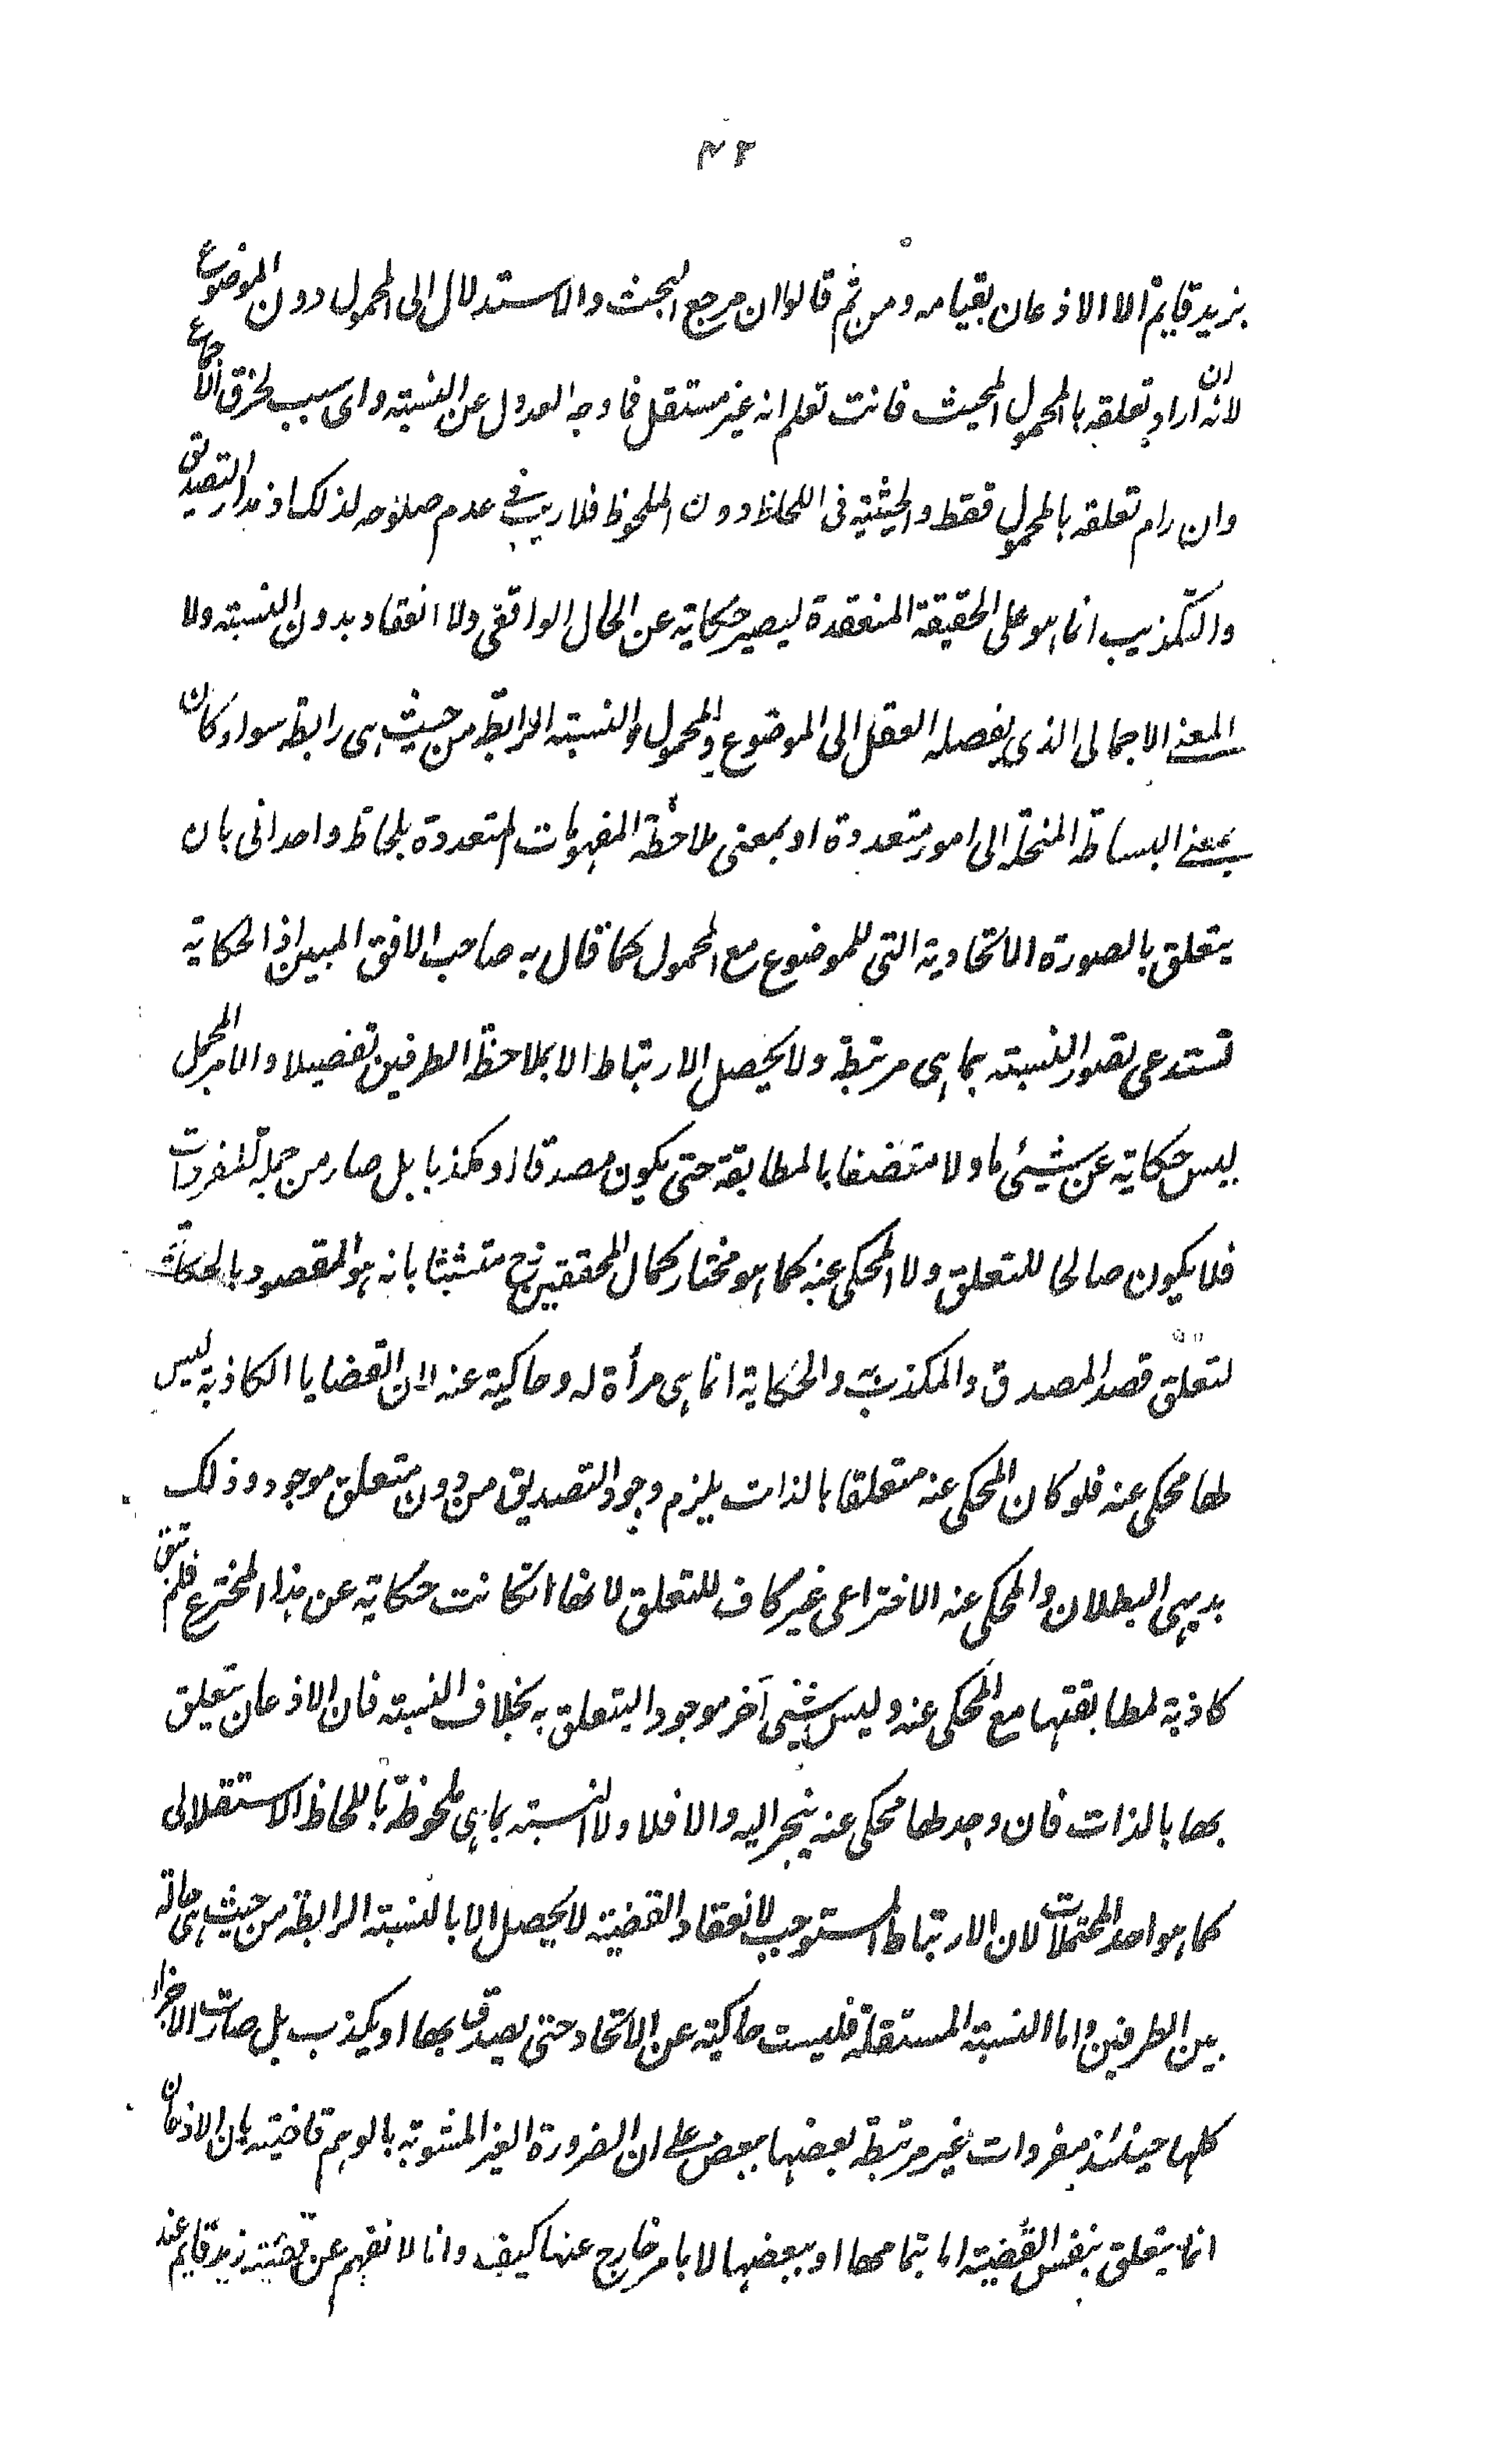 بزيد قايم الا الاذعان بقيامه ومن ثم قالوا ان مرجع البحث والاستدلال الى المحمول دون الموضوع
لانه ان اراد تعلقه بالمحمول المحيث فانت تعلم انه غير مستقل فما وجه العدول عن النسبته واى سبب لخرق الاجماع
وان رام تعلقه بالمحمول فقط والحيثية فى اللحاظ دون الملحوظ فلا ريب فى عدم صلوحه لذلك اذ مدار التصديق
والتكذيب انما هو على الحقيقة المنعقدة ليصير حكاية عن الحال الواقعى ولا انعقاد بدون النسبته ولا
المعنى الاجمالى الذى يفصله العقل الى الموضوع والمحمول والنسبته الرابطة من حيث هى رابطة سواء كان
بمعنى البساطة المنحلة الى امور متعددة او بمعنى ملاحظة المفهومات المتعددة بلحاظ واحدانى بان
يتعلق بالصورة الاتحادية التى للموضوع مع المحمول كما قال به صاحب الافق المبين اذ الحكاية
تستدعى تصور النسبته بما هى مرتبطة ولا يحصل الارتباط الا بملاحظة الطرفين تفصيلا والامر المجمل
ليس حكاية عن شيئى ما ولا متصفا بالمطابقة حتى يكون مصدقا او مكذبا بل صار من جملة المفردات
فلا يكون صالحا للتعلق ولا المحكى عنه كما هو مختار كمال المحققين رح متشبثا بانه هو المقصود بالحكاية
لتعلق قصد المصدق والمكذب والحكاية انما هى مرأة له وحاكية عنه لان القضايا الكاذبة ليس
لها محكى عنه فلو كان المحكى عنه متعلقا بالذات يلزم وجود التصديق من دون متعلق موجود وذلك
بديهى البطلان والمحكى عنه الاختراعى غير كاف للتعلق لانها انكانت حكاية عن هذا المخترع فلم تبق
كاذبة لمطابقتها مع المحكى عنه وليس شيئى آخر موجودا ليتعلق به بخلاف النسبته فان الاذعان يتعلق
بها بالذات فان وجد لها محكى عنه ينجر اليه والا فلا ولا النسبته بما هى ملحوظة باللحاظ الاستقلالى
كما هو احد المحتملات لان الارتباط المستوجب لانعقاد القضية لا يحصل الا بالنسبته الرابطة من حيث هى حالة
بين الطرفين واما النسبته المستقلة فليست حاكية عن الاتحاد حتى يصدق بها او يكذب بل صارت الاجزاء
كلها حينئذ مفردات غير مرتبطة بعضها ببعض على ان الضرورة الغير المشوبة بالوهم قاضية بان الاذعان
انما يتعلق بنفس القضية اما بتمامها او ببعضها لا بامر خارج عنها كيف وانا لا نفهم عن قضية زيد قايم عند